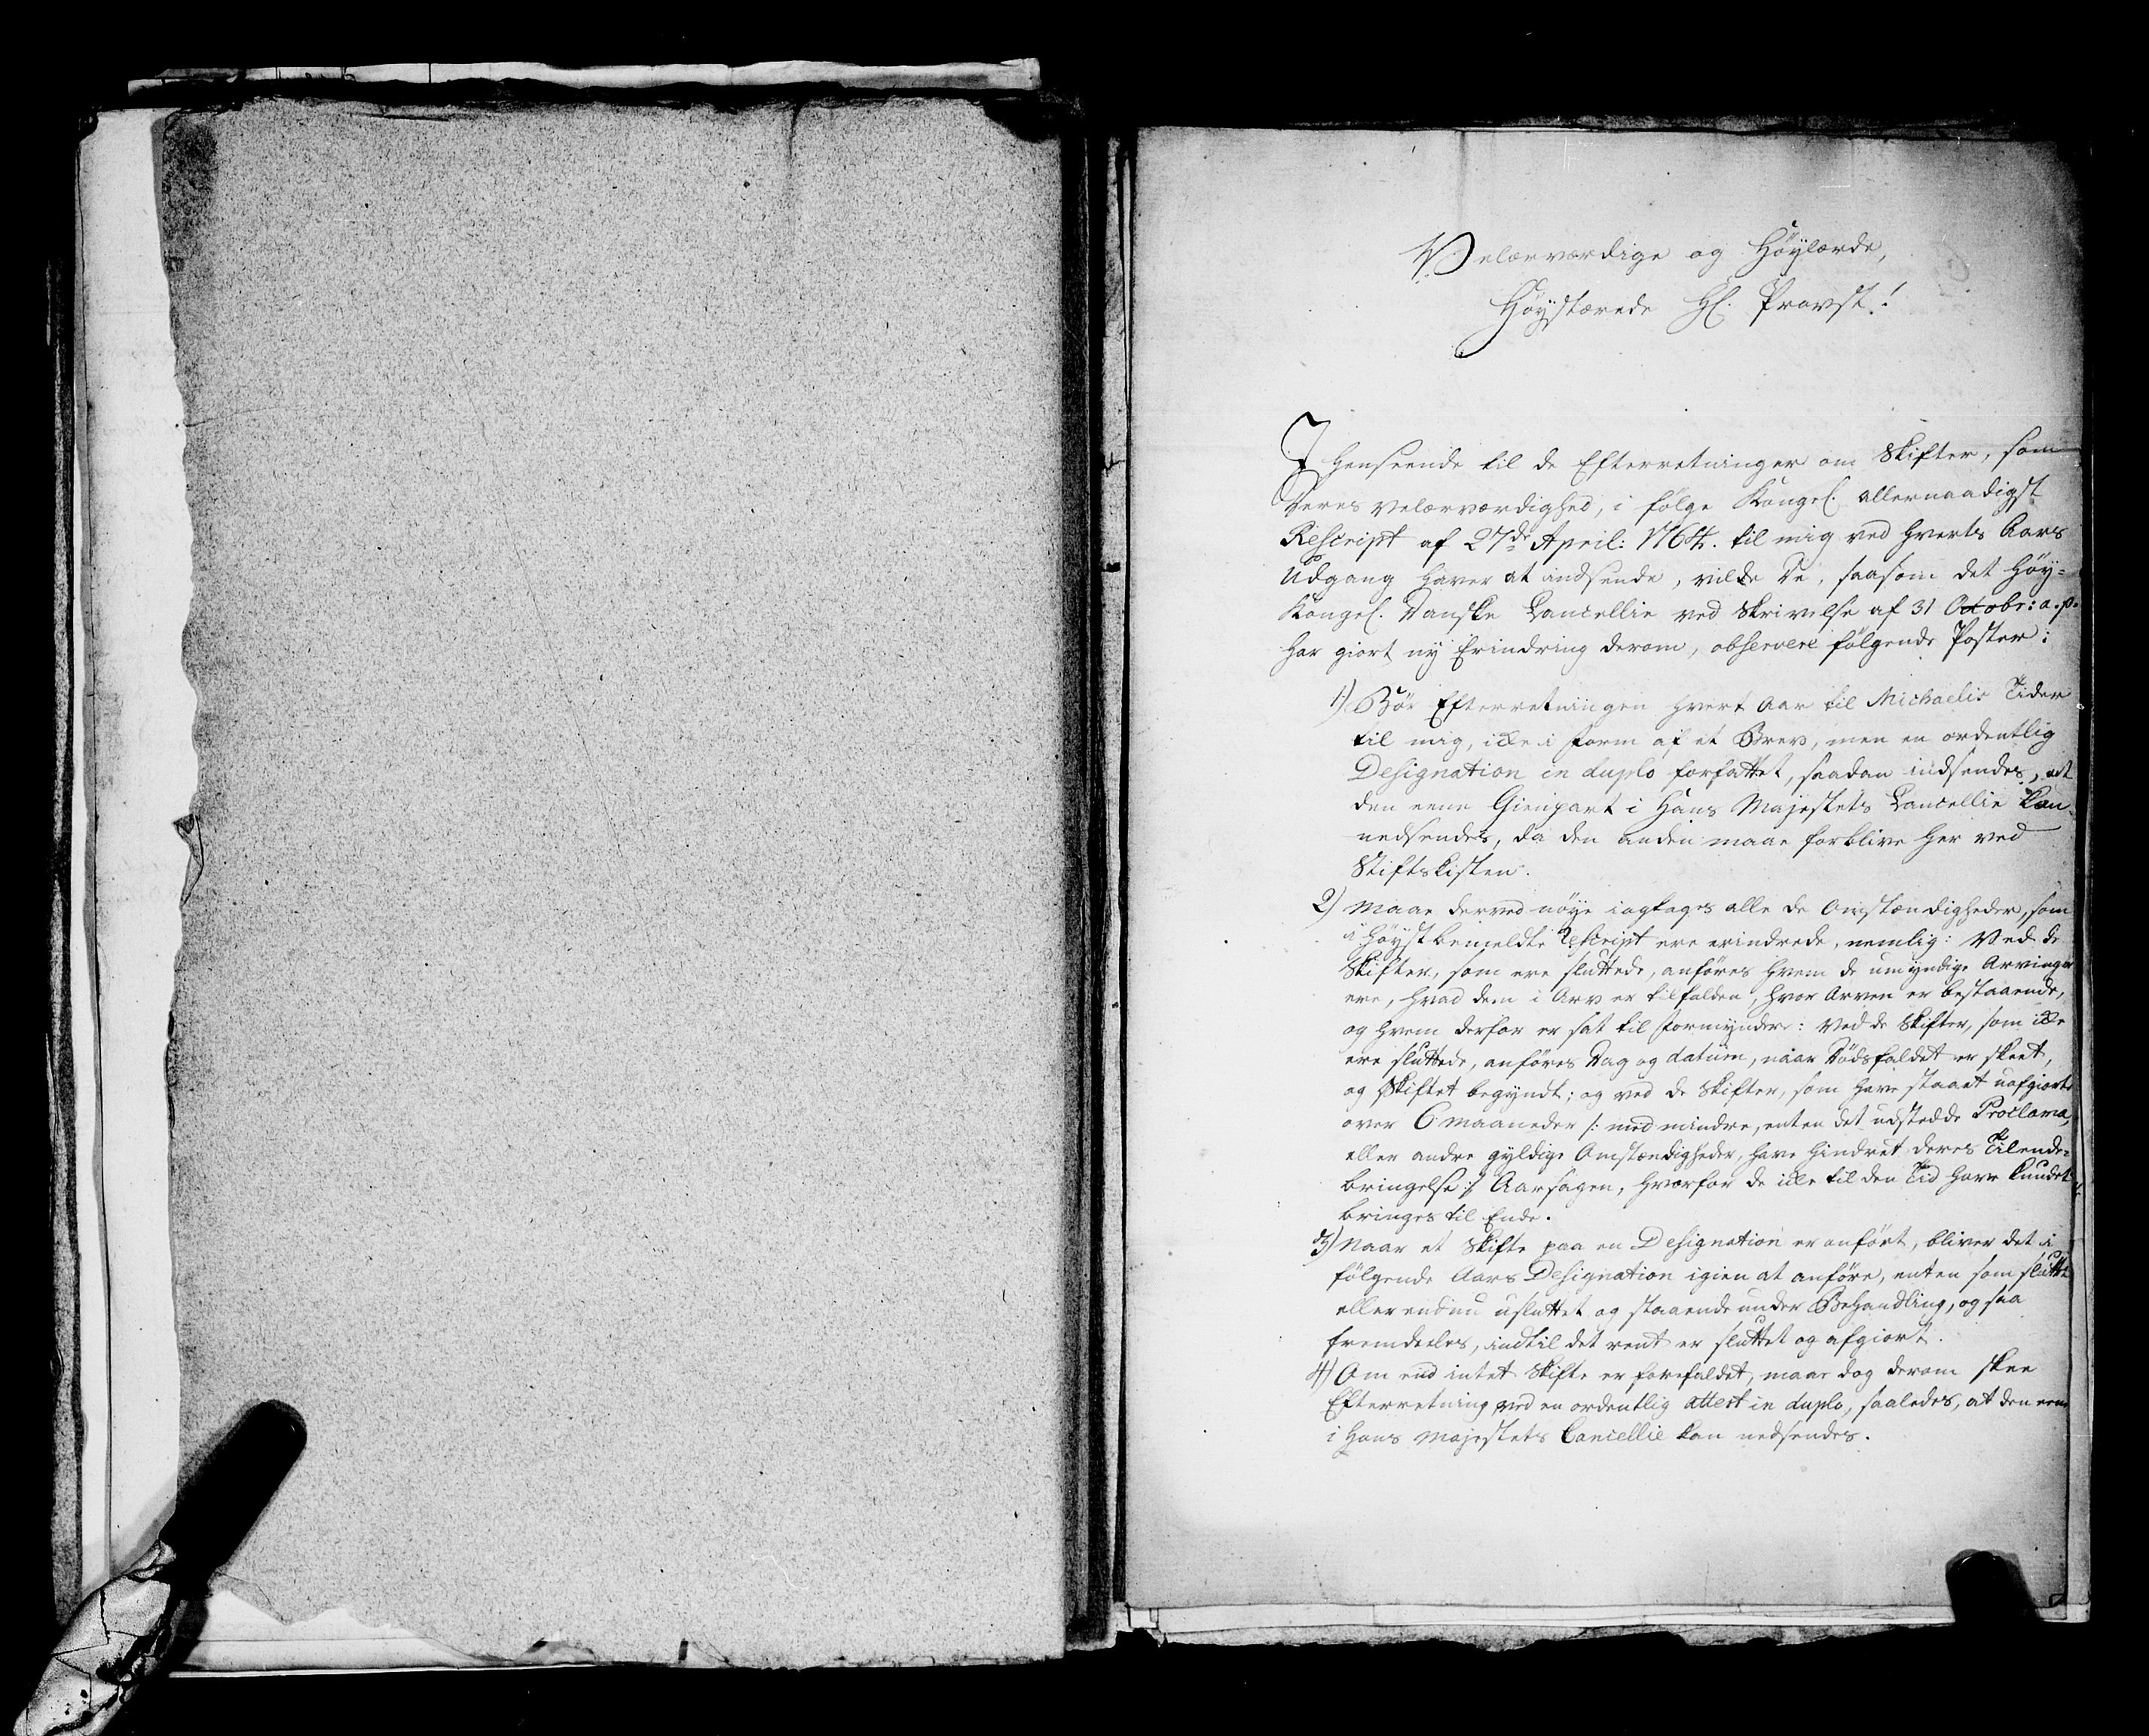 Velærværdige og Høylærde,
Høystærede Hr. Provst!
I Henseende til de Efterretninger om Skifter, som
Deres Velærværdighed, i følge Kongel. allernaadigst
Rescript af 27de April: 1764. til mig ved hverts Aars
Udgang haver at indsende, vilde De, saasom det Høy-
Kongel. Danske Cancellie ved Skrivelse af 31 Octobr: a. p.
har giort ny Erindring derom, observere følgende Poster:
1) Bør Efterretningen hvert Aar til Michaelis Tider
til mig, ikke i Form af et Brev, men en ordentlig
Designation in duplo forfattet, saadan indsendes, at
den eene Gienpart i Hans Majestets Cancellie kan
nedsendes, da den anden maae forblive her ved
Stiftskisten.
2) Maae derved nøye iagtages alle de Omstændigheder, som
i Høystbemeldte Rescript ere erindrede, nemlig: Ved de
Skifter, som ere sluttede, anføres hvem de umyndige Arvinger
ere, hvad dem i Arv er tilfalden, hvor Arven er bestaaende,
og hvem derfor er sat til Formyndere: Ved de Skifter, som ikke
ere sluttede, anføres Dag og datum, naar Dødsfaldet er skeet,
og Skiftet begyndt; og ved de Skifter, som have staaet uafgiorte
over 6 Maaneder /: med mindre, enten det udstedde Proclama,
eller andre gyldige Omstændigheder, have hindret deres Tilende-
bringelse :/ Aarsagen, hvorfor de ikke til den Tid have kundet
bringes til Ende.
3) Naar et Skifte paa en Designation er anført, bliver det i
følgende Aars Designation igien at anføre, enten som sluttet
eller endnu usluttet og staaende under Behandling, og saa
fremdeeles, indtil det rent er sluttet og afgiort.
4) Om end intet Skifte er forefaldet, maae dog derom skee
Efterretning ved en ordentlig attest in duplo, saaledes, at den eene
i Hans Majestets Cancellie kan nedsendes.